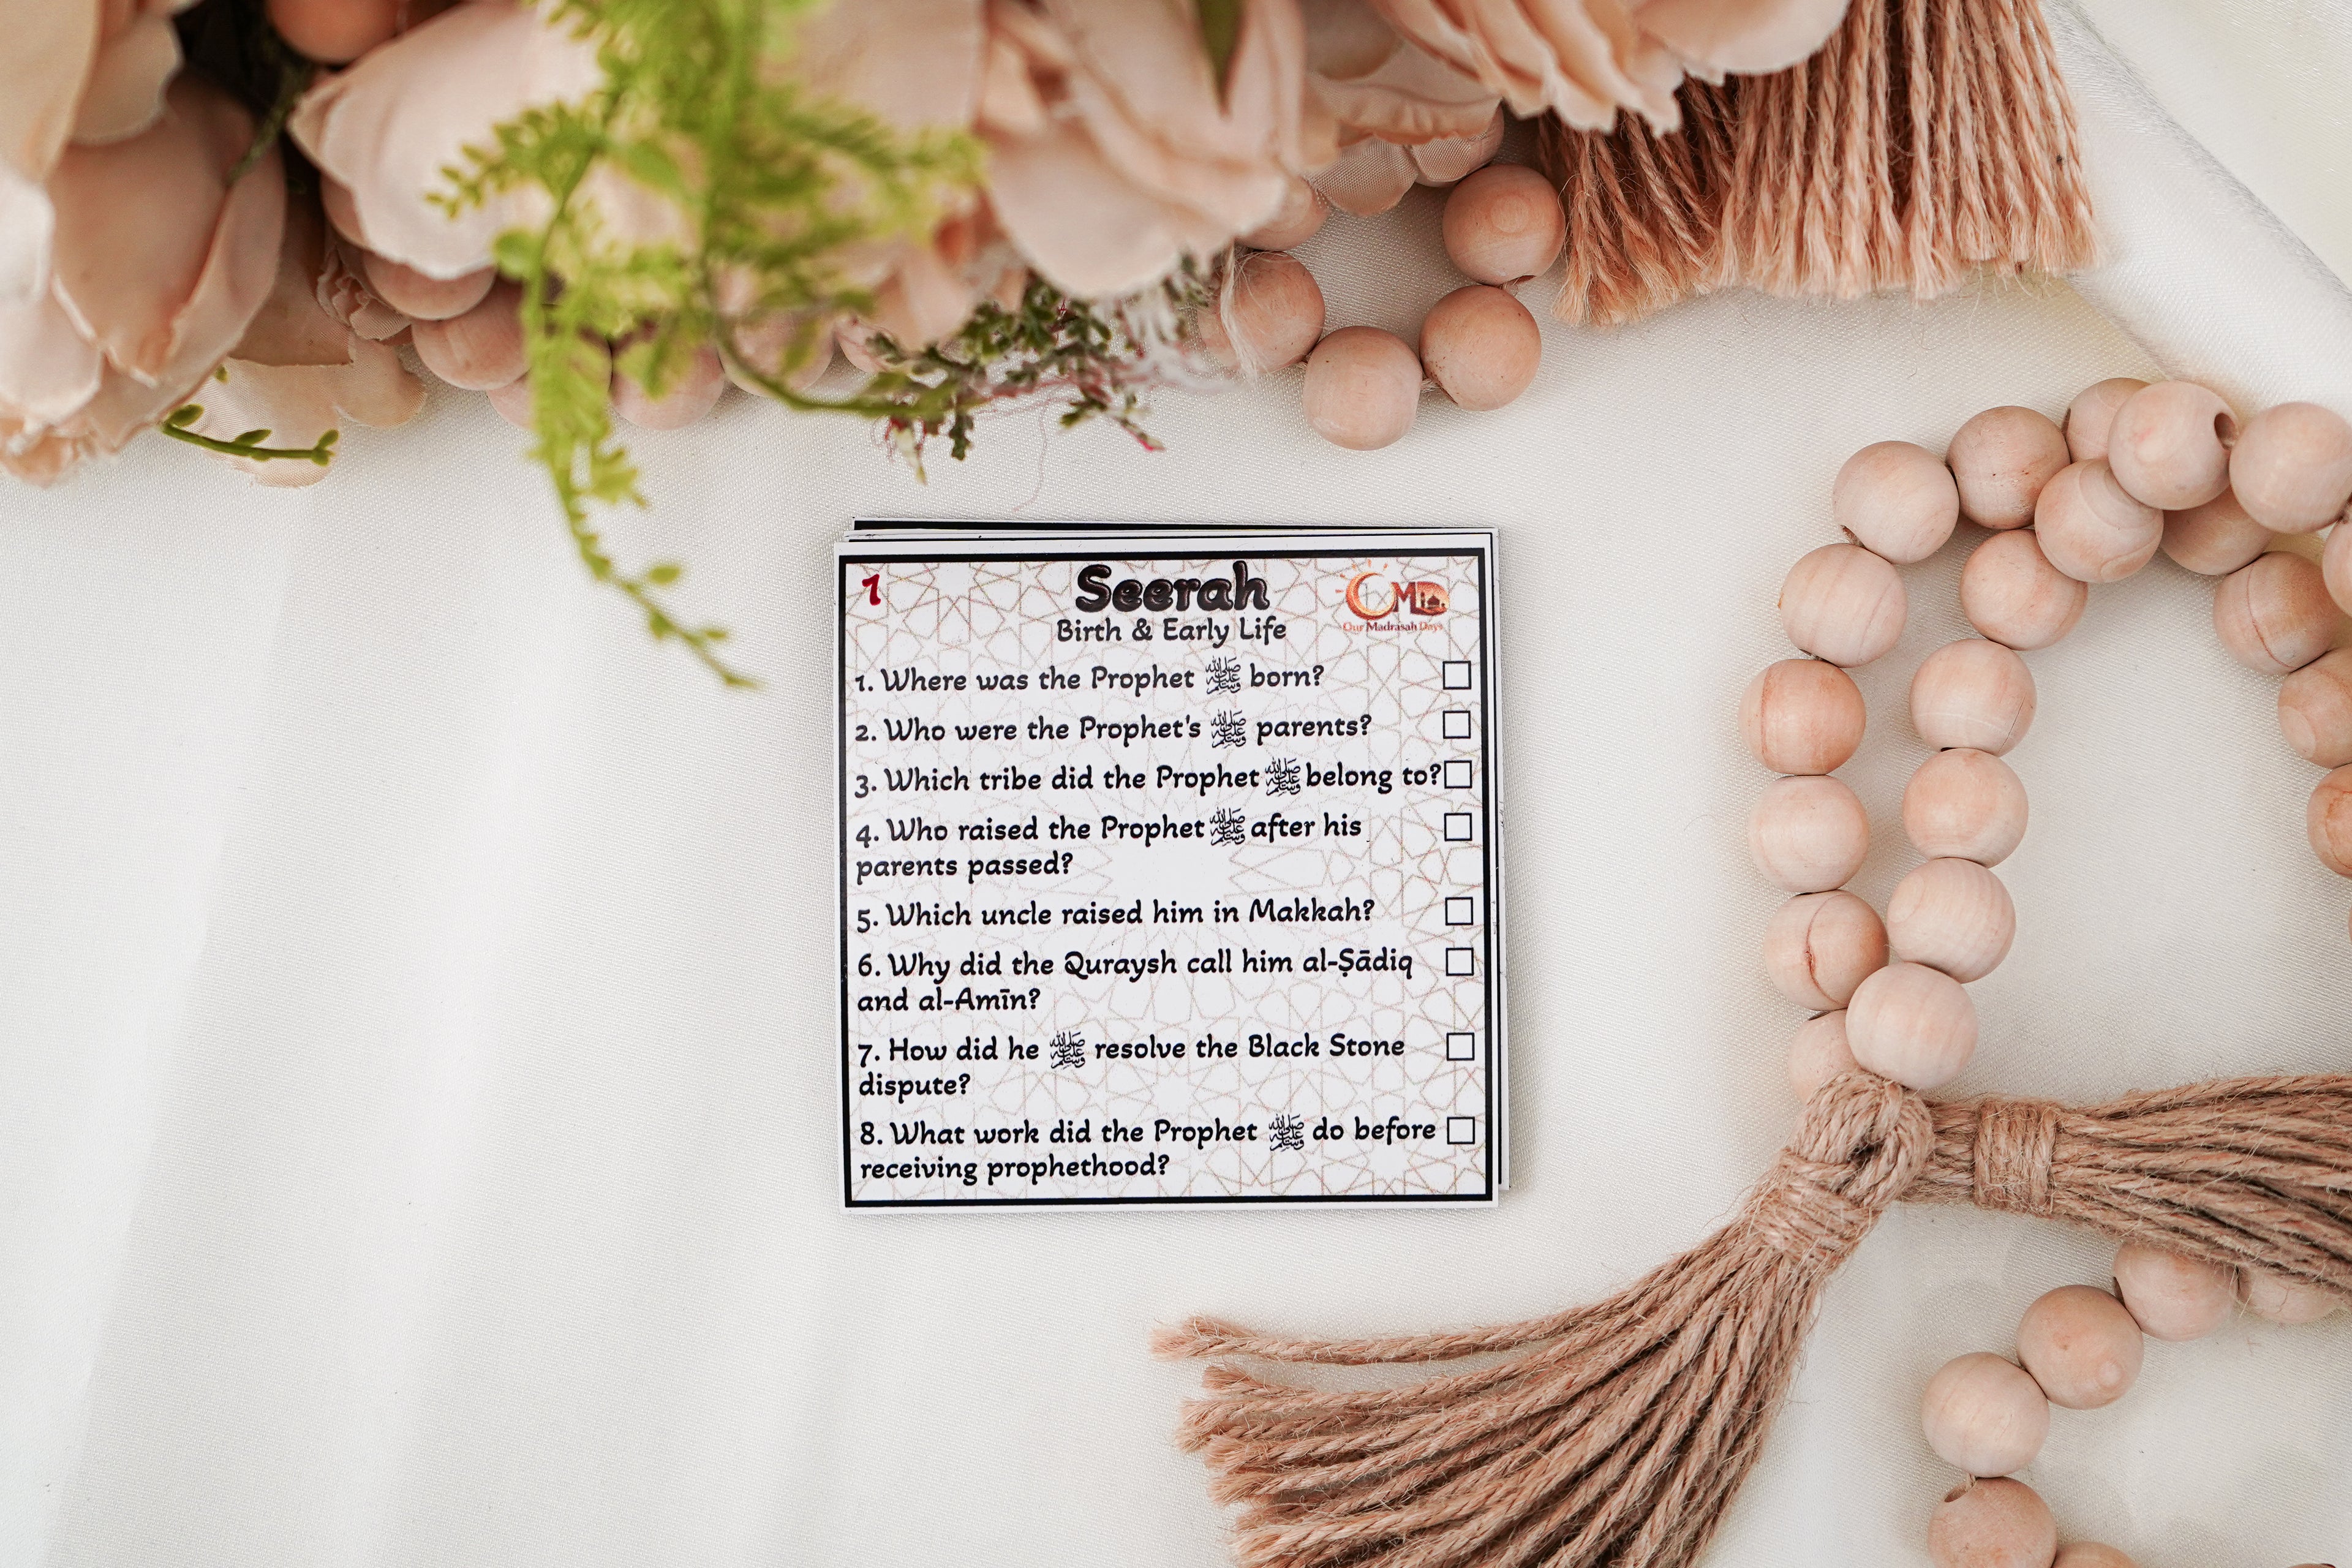 1
Seerah
OMD
Our Madrasah Days
Birth & Early Life
1. Where was the Prophet ﷺ born?
2. Who were the Prophet's ﷺ parents?
3. Which tribe did the Prophet ﷺ belong to?
4. Who raised the Prophet ﷺ after his
parents passed?
5. Which uncle raised him in Makkah?
6. Why did the Quraysh call him al-Ṣādiq
and al-Amīn?
7. How did he ﷺ resolve the Black Stone
dispute?
8. What work did the Prophet ﷺ do before
receiving prophethood?